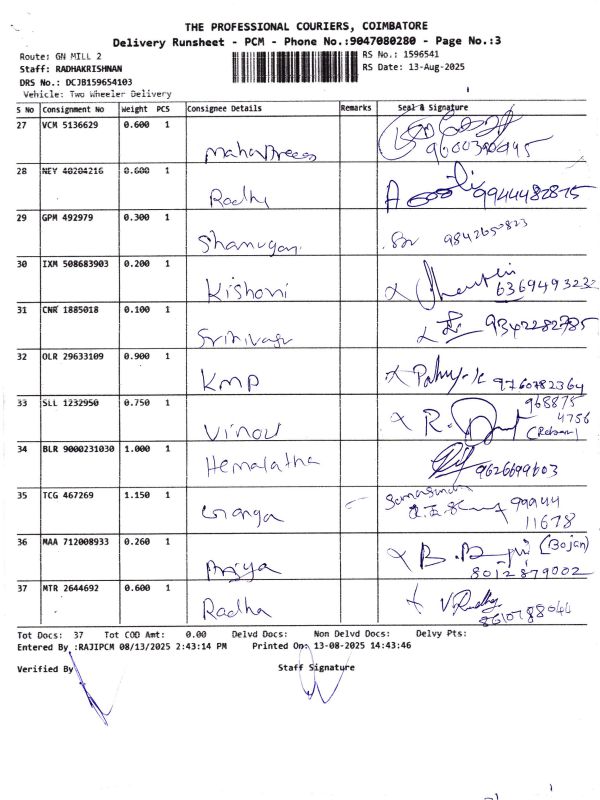 THE PROFESSIONAL COURIERS, COIMBATORE
Delivery Runsheet - PCM - Phone No.:9047080280 - Page No.:3
Route: GN MILL 2
RS No.: 1596541
Staff: RADHAKRISHNAN
RS Date: 13-Aug-2025
DRS No.: DCJB159654103
Vehicle: Two Wheeler Delivery
S No Consignment No Weight PCS Consignee Details Remarks Seal & Signature
27 VCM 5136629 0.600 1
28 NEY 40204216 0.600 1
Radhy 9944482875
29 GPM 492979 0.300 1
Shanugan 9842650823
30 IXM 508683903 0.200 1
Kishori 6369493232
31 CNR 1885018 0.100 1
9342282785
32 OLR 29633109 0.900 1
KMP 9760782364
33 SLL 1232950 0.750 1
Vinou R. 968875
4756
34 BLR 9000231030 1.000 1
Hemalatha 9626699603
35 TCG 467269 1.150 1
Ganga 99944
11678
36 MAA 712008933 0.260 1
Priya B. (Bojan)
8012879002
37 MTR 2644692 0.600 1
Radha V.Radhy
8610788044
Tot Docs: 37 Tot COD Amt: 0.00 Delvd Docs: Non Delvd Docs: Delvy Pts:
Entered By :RAJIPCM 08/13/2025 2:43:14 PM Printed On: 13-08-2025 14:43:46
Verified By Staff Signature